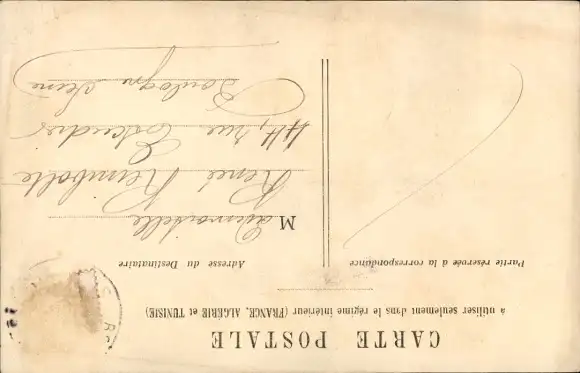 CARTE POSTALE
à utiliser seulement dans le régime intérieur (FRANCE, ALGÉRIE et TUNISIE)
Partie réservée à la correspondance
Adresse du Destinataire
Mademoiselle
Renée
44, rue
Boulogne Seine